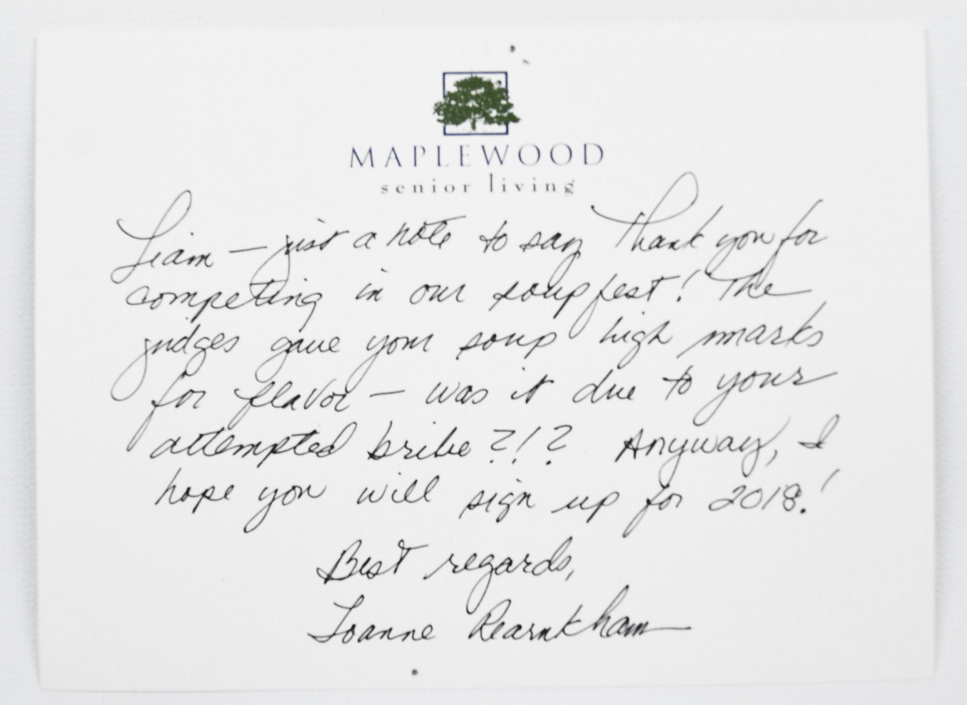 MAPLEWOOD
senior living
Liam – just a note to say Thank you for
competing in our soupfest! The
judges gave your soup high marks
for flavor – was it due to your
attempted bribe?!? Anyway, I
hope you will sign up for 2018!
Best regards,
Joanne